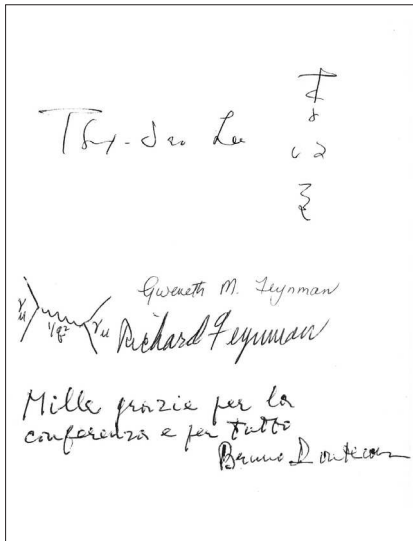 Tsung-Dao Lee
Gweneth M. Feynman
γμ 1/q² γμ Richard Feynman
Mille grazie per la
conferenza e per tutto
Bruno Pontecorvo